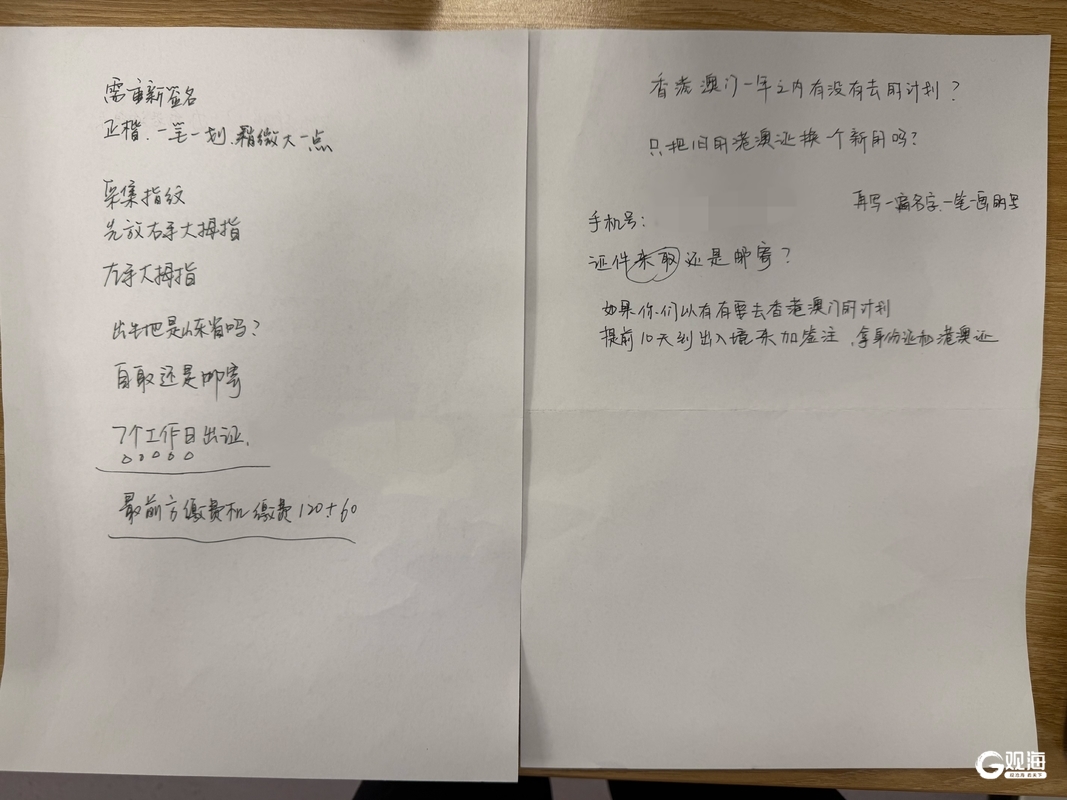 需重新签名
正楷.一笔一划.稍微大一点
采集指纹
先放右手大拇指
左手大拇指
出生地是山东省吗?
自取还是邮寄
7个工作日出证.
最前方缴费机缴费120+60
香港澳门一年之内有没有去的计划?
只把旧的港澳证换一个新的吗?
再写一遍名字.一笔一画的写
手机号:
证件来取还是邮寄?
如果你们以有有要去香港澳门的计划
提前10天到出入境来加签注.拿身份证和港澳证
观海